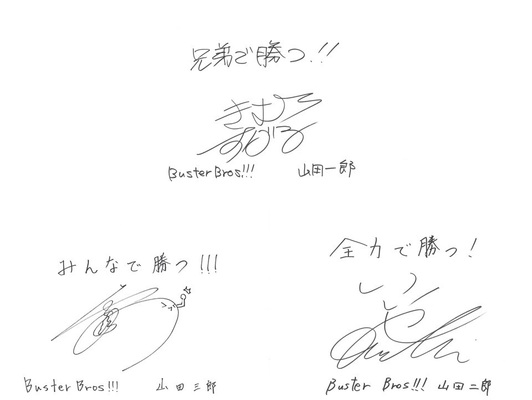 兄弟で勝つ!!
Buster Bros!!! 山田一郎
みんなで勝つ!!!
Buster Bros!!! 山田三郎
全力で勝つ!
Buster Bros!!! 山田二郎